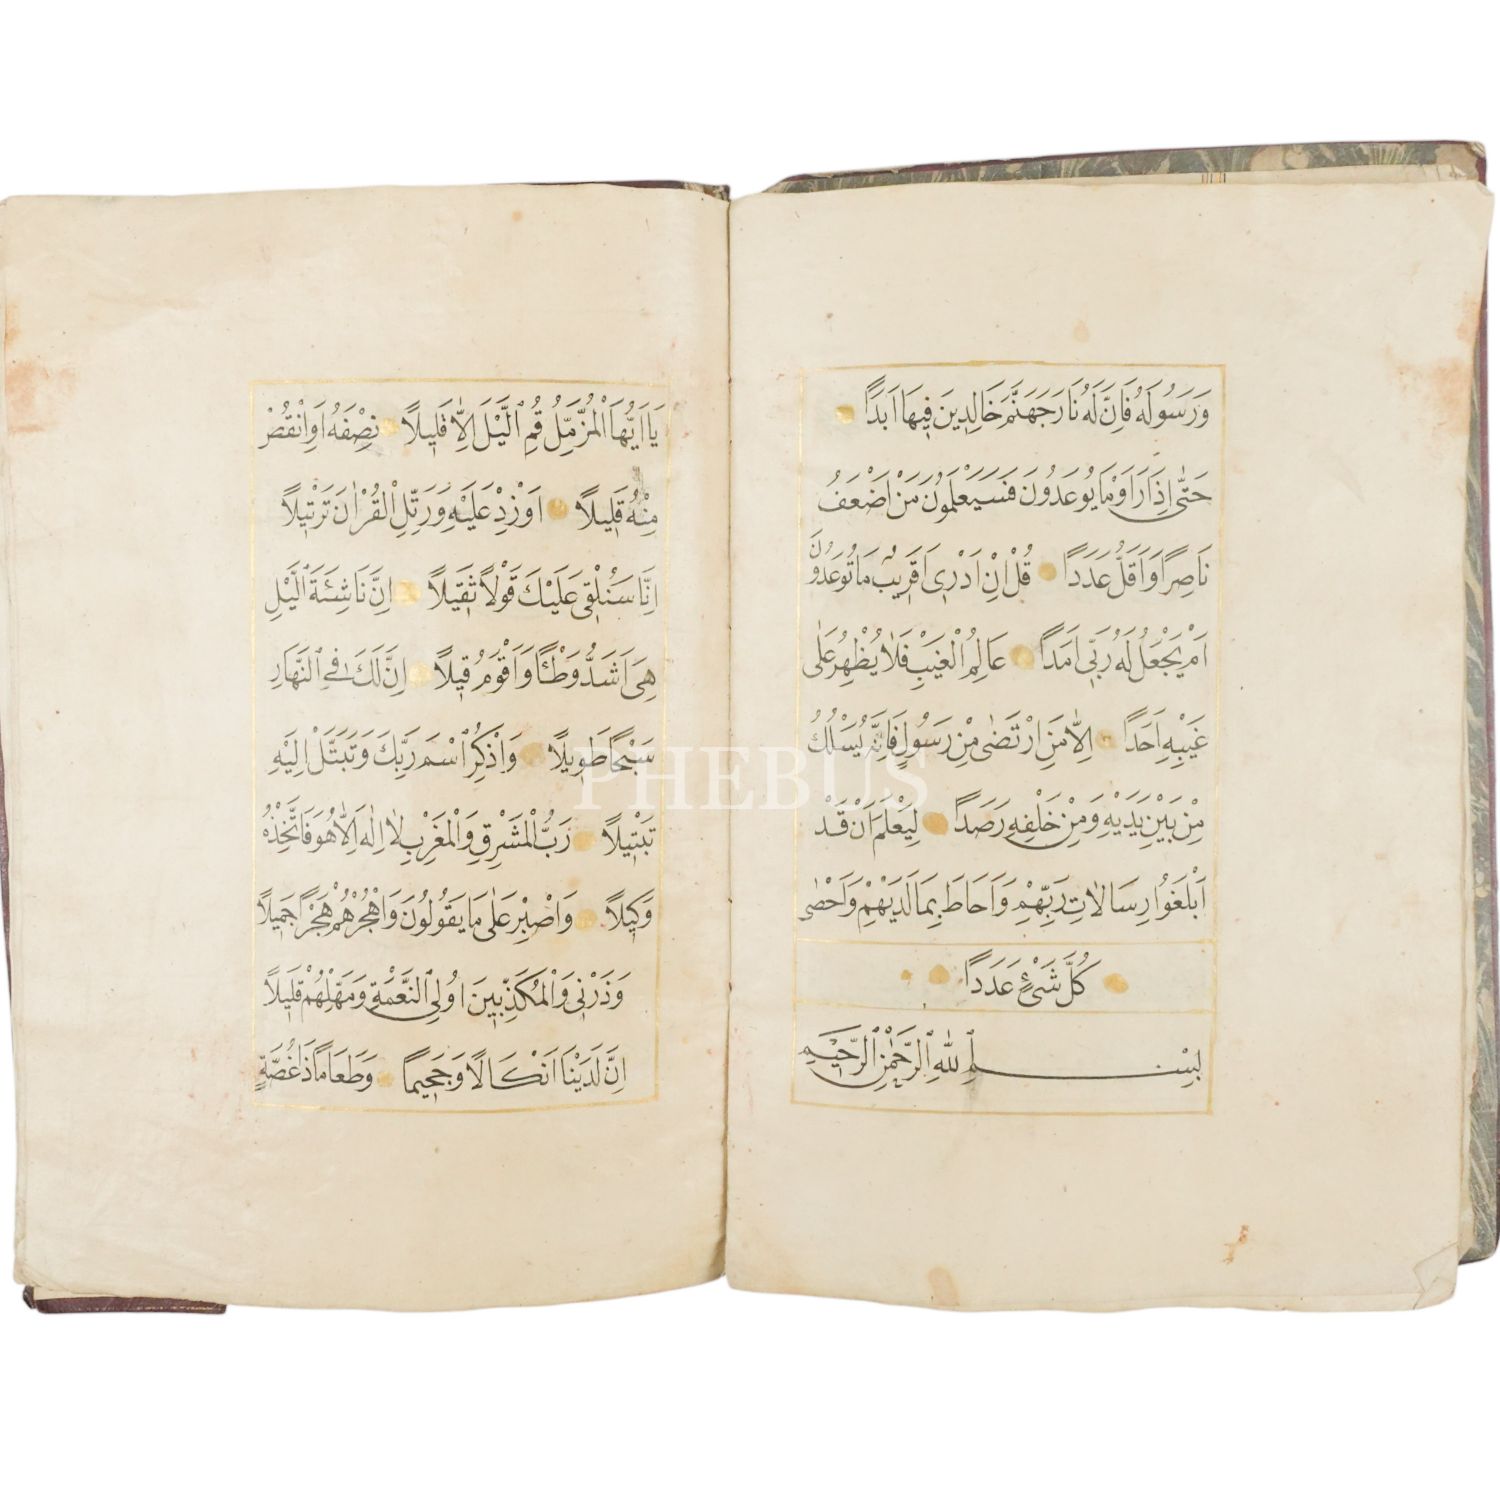 وَرَسُولَهُ فَاِنَّ لَهُ نَارَ جَهَنَّمَ خَالِدِينَ فِيهَا اَبَدًا
حَتّٰى اِذَا رَاَوْا مَا يُوعَدُونَ فَسَيَعْلَمُونَ مَنْ اَضْعَفُ
نَاصِرًا وَاَقَلُّ عَدَدًا قُلْ اِنْ اَدْرٖى اَقَرِيبٌ مَا تُوعَدُونَ
اَمْ يَجْعَلُ لَهُ رَبِّى اَمَدًا عَالِمُ الْغَيْبِ فَلَا يُظْهِرُ عَلٰى
غَيْبِهِ اَحَدًا اِلَّا مَنِ ارْتَضٰى مِنْ رَسُولٍ فَاِنَّهُ يَسْلُكُ
مِنْ بَيْنِ يَدَيْهِ وَمِنْ خَلْفِهِ رَصَدًا لِيَعْلَمَ اَنْ قَدْ
اَبْلَغُوا رِسَالَاتِ رَبِّهِمْ وَاَحَاطَ بِمَا لَدَيْهِمْ وَاَحْصٰى
كُلَّ شَىْءٍ عَدَدًا
بِسْمِ اللّٰهِ الرَّحْمٰنِ الرَّحِيمِ
يَا اَيُّهَا الْمُزَّمِّلُ قُمِ الَّيْلَ اِلَّا قَلِيلًا نِصْفَهُ اَوِ انْقُصْ
مِنْهُ قَلِيلًا اَوْ زِدْ عَلَيْهِ وَرَتِّلِ الْقُرْاٰنَ تَرْتِيلًا
اِنَّا سَنُلْقِى عَلَيْكَ قَوْلًا ثَقِيلًا اِنَّ نَاشِئَةَ الَّيْلِ
هِىَ اَشَدُّ وَطْئًا وَاَقْوَمُ قِيلًا اِنَّ لَكَ فِى النَّهَارِ
سَبْحًا طَوِيلًا وَاذْكُرِ اسْمَ رَبِّكَ وَتَبَتَّلْ اِلَيْهِ
تَبْتِيلًا رَبُّ الْمَشْرِقِ وَالْمَغْرِبِ لَا اِلٰهَ اِلَّا هُوَ فَاتَّخِذْهُ
وَكِيلًا وَاصْبِرْ عَلٰى مَا يَقُولُونَ وَاهْجُرْهُمْ هَجْرًا جَمِيلًا
وَذَرْنِى وَالْمُكَذِّبِينَ اُولِى النَّعْمَةِ وَمَهِّلْهُمْ قَلِيلًا
اِنَّ لَدَيْنَا اَنْكَالًا وَجَحِيمًا وَطَعَامًا ذَا غُصَّةٍ
PHEBUS